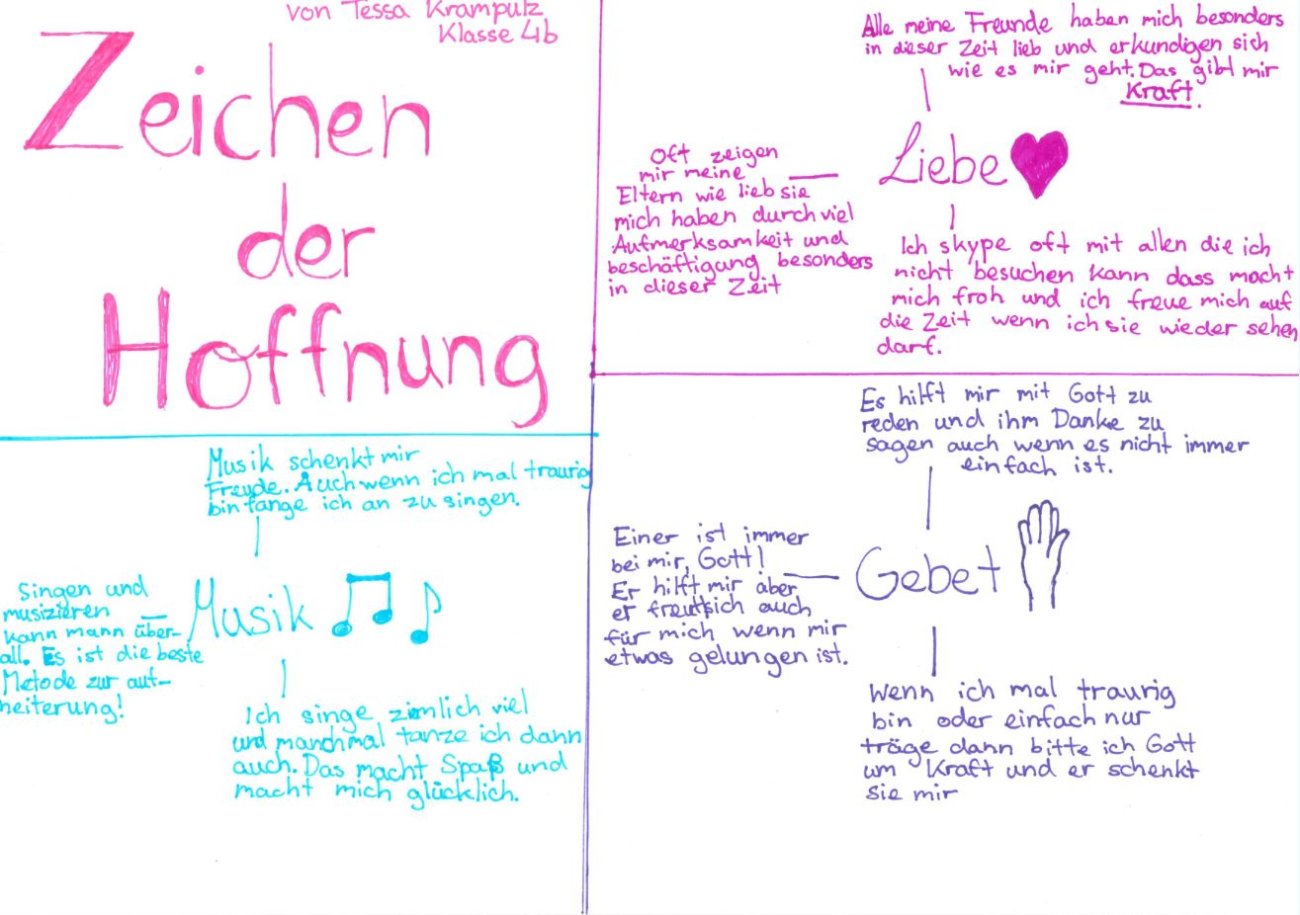 von Tessa Krampulz
Klasse 4b
Zeichen
der
Hoffnung
Alle meine Freunde haben mich besonders
in dieser Zeit lieb und erkundigen sich
wie es mir geht. Das gibt mir
Kraft.
Liebe
Oft zeigen
mir meine
Eltern wie lieb sie
mich haben durch viel
Aufmerksamkeit und
beschäftigung besonders
in dieser Zeit
Ich skype oft mit allen die ich
nicht besuchen kann dass macht
mich froh und ich freue mich auf
die Zeit wenn ich sie wieder sehen
darf.
Musik schenkt mir
Freude. Auch wenn ich mal traurig
bin fange ich an zu singen.
Musik
Singen und
musizieren
kann mann über-
all. Es ist die beste
Metode zur auf-
heiterung!
Ich singe ziemlich viel
und manchmal tanze ich dann
auch. Das macht Spaß und
macht mich glücklich.
Es hilft mir mit Gott zu
reden und ihm Danke zu
sagen auch wenn es nicht immer
einfach ist.
Gebet
Einer ist immer
bei mir, Gott!
Er hilft mir aber
er freut sich auch
für mich wenn mir
etwas gelungen ist.
Wenn ich mal traurig
bin oder einfach nur
träge dann bitte ich Gott
um Kraft und er schenkt
sie mir